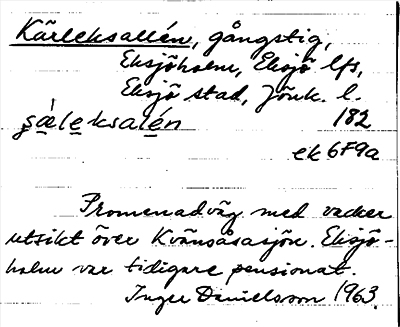 Kärleksallén, gångstig,
Eksjöholm, Eksjö lfs,
Eksjö stad, Jönk. l.
182
ek 6F9a
Promenadväg med vacker
utsikt över Kvänsåsasjön. Eksjö-
holm var tidigare pensionat.
Inger Danielsson 1963.